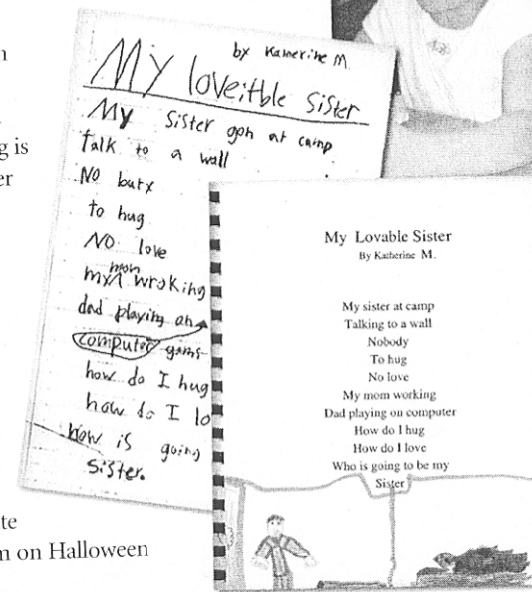 by Katherine M.
My loveitble Sister
My Sister gon at camp
Talk to a wall
No butx
to hug
NO love
my mon wroking
dad playing on
computer gams
how do I hug
how do I lo
how is going
Sister.
My Lovable Sister
By Katherine M.
My sister at camp
Talking to a wall
Nobody
To hug
No love
My mom working
Dad playing on computer
How do I hug
How do I love
Who is going to be my
Sister
g is
er
te
n on Halloween